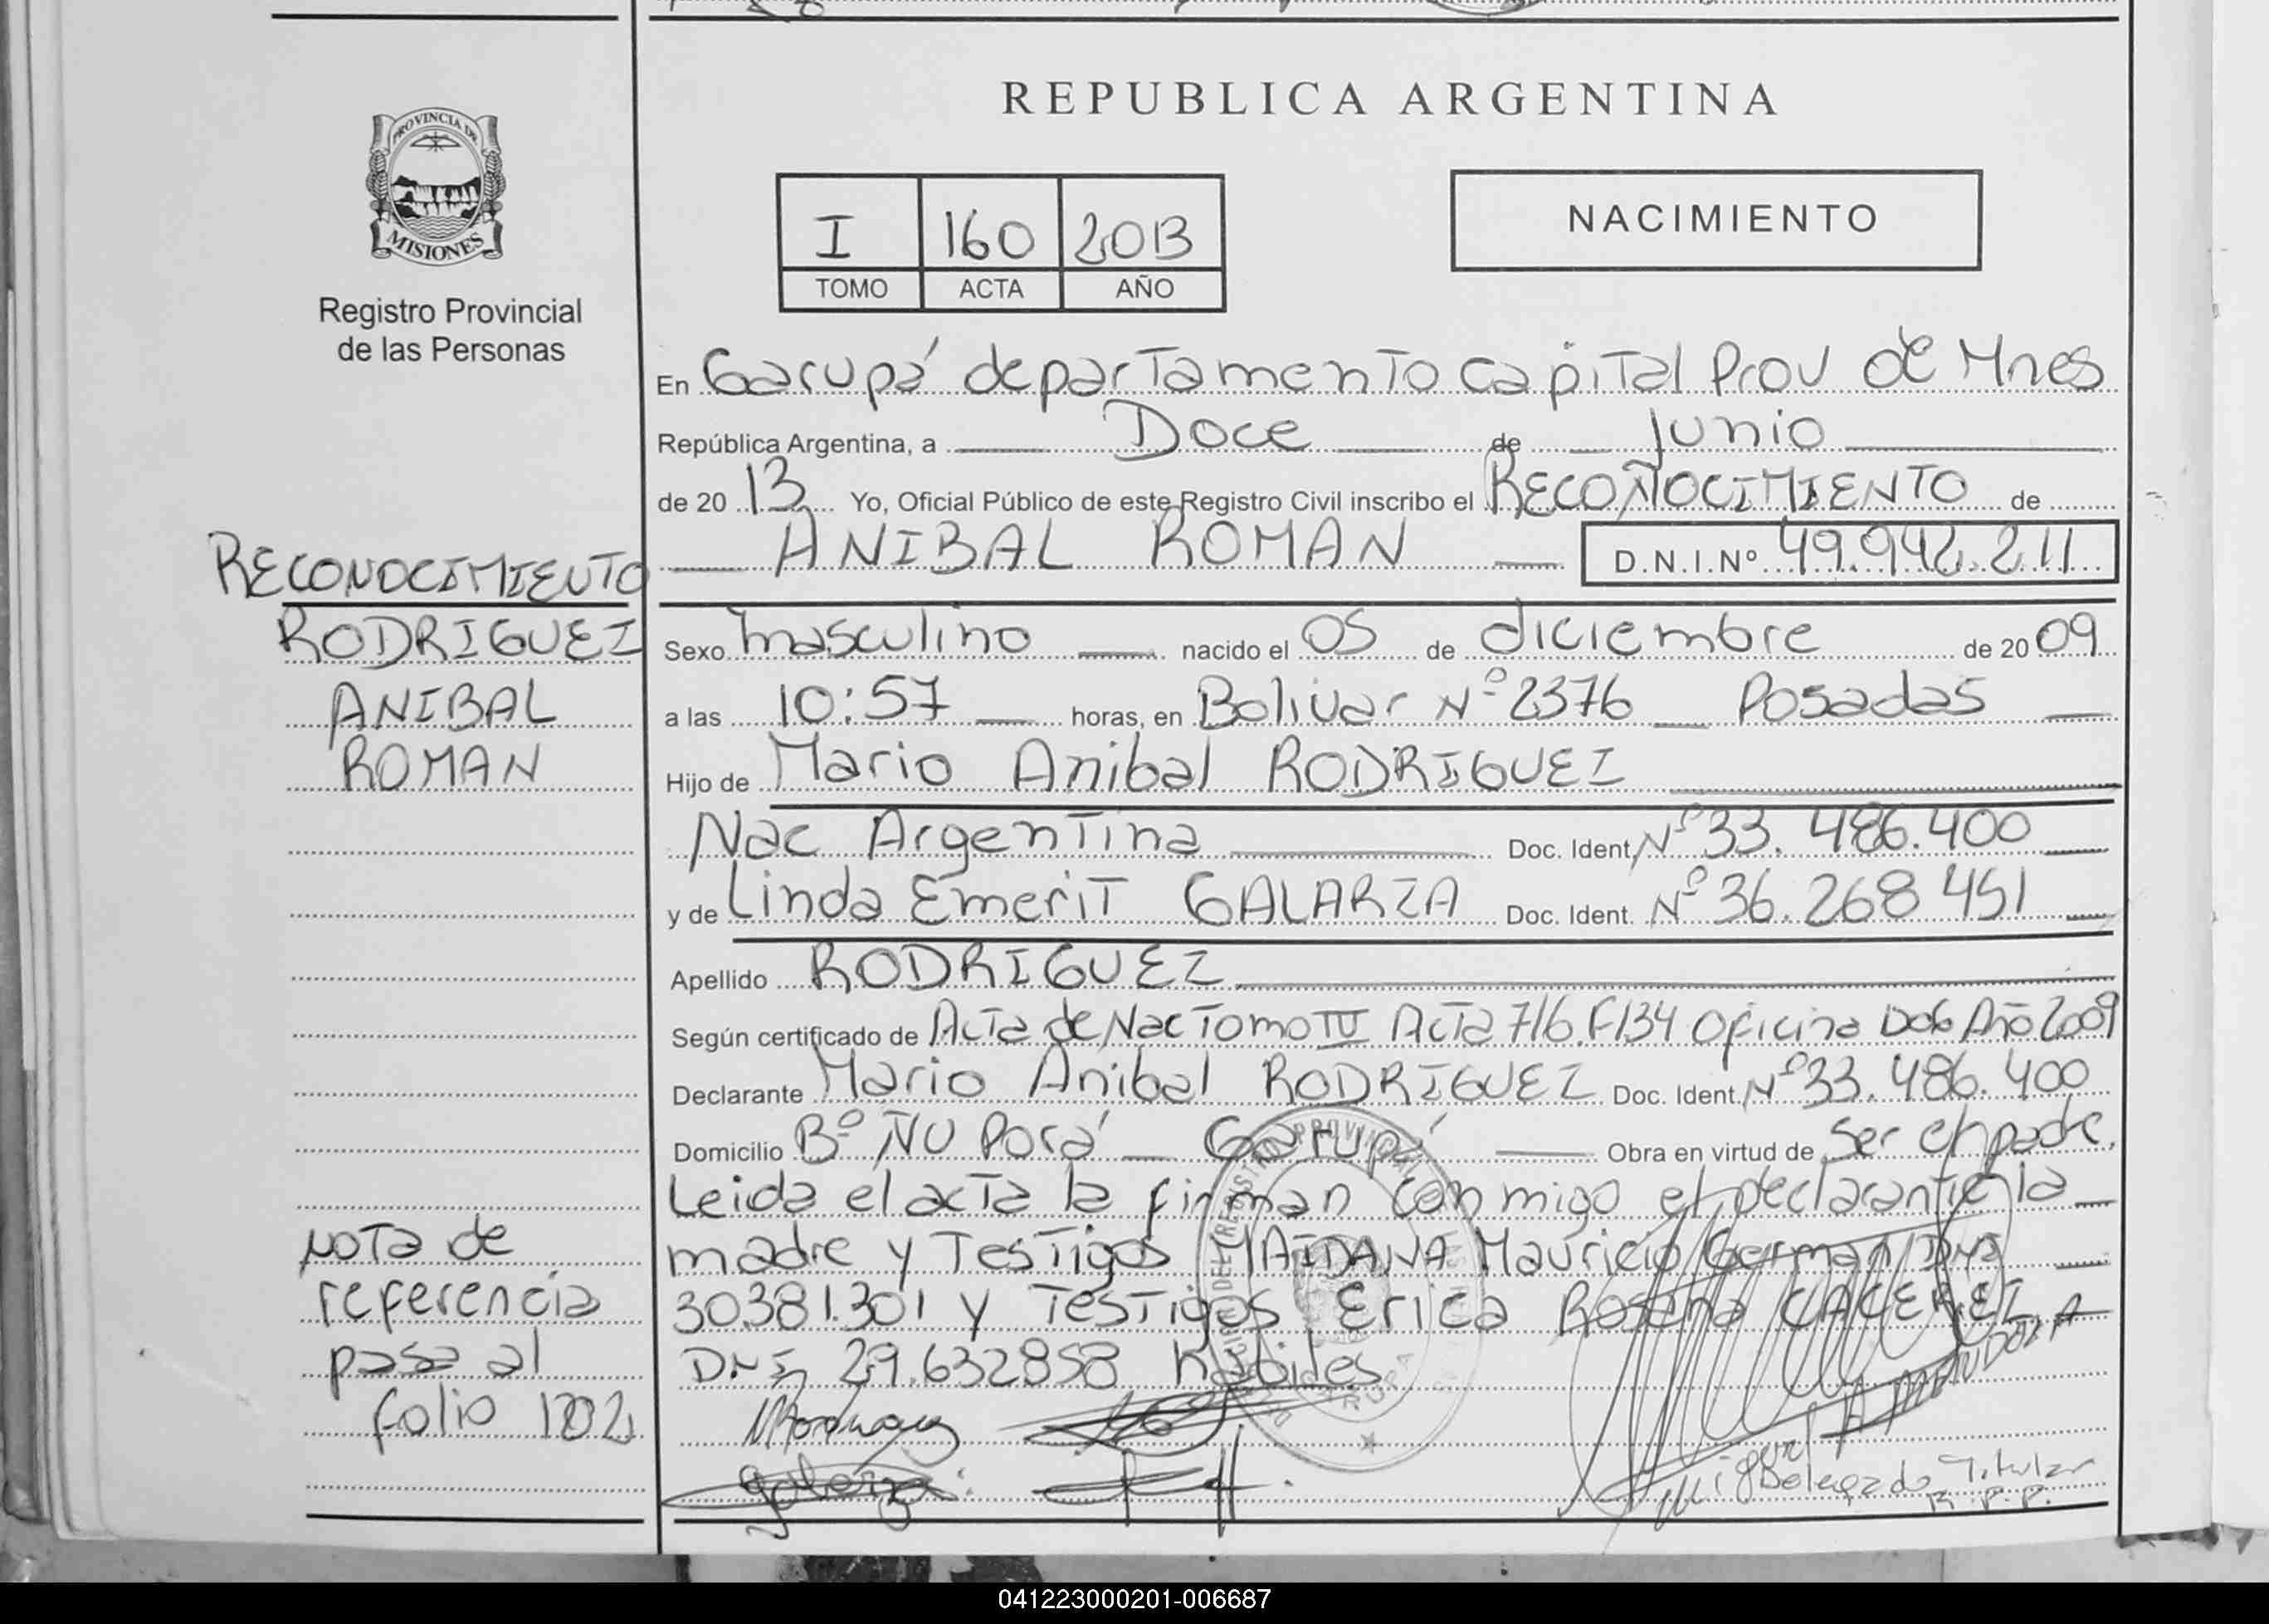 REPUBLICA ARGENTINA
PROVINCIA DE
MISIONES
Registro Provincial
de las Personas
I 160 2013
TOMO ACTA AÑO
NACIMIENTO
En Garupá departamento Capital Prov de Mnes
República Argentina, a Doce de Junio
de 2013 Yo, Oficial Público de este Registro Civil inscribo el RECONOCIMIENTO de
ANIBAL ROMAN D.N.I.Nº 49.942.211
RECONOCIMIENTO
RODRIGUEZ
ANIBAL
ROMAN
Sexo masculino nacido el 05 de diciembre de 2009
a las 10:57 horas, en Bolivar Nº 2376 Posadas
Hijo de Mario Anibal RODRIGUEZ
Nac Argentina Doc. Ident. Nº 33.486.400
y de Linda Emerit GALARZA Doc. Ident. Nº 36.268 451
Apellido RODRIGUEZ
Según certificado de Acta de Nac Tomo IV Acta 716 F134 Oficina Año 2009
Declarante Mario Anibal RODRIGUEZ Doc. Ident. Nº 33.486.400
Domicilio Bº ÑU Porá Garupá Obra en virtud de Ser el padre.
Leida el acta la firman conmigo el declarante la
madre y Testigos MAIDANA Mauricio German DNI
30.381.301 y Testigos Erica CACEREZ
DNI 29.632858 Habiles
Nota de
referencia
pasa al
folio 1202
Miguel A MENDOZA
Delegado Titular
R.P.P.
041223000201-006687